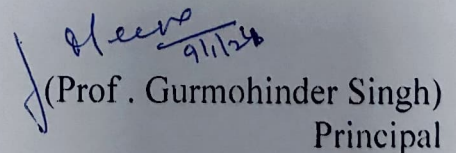 (Prof . Gurmohinder Singh)
Principal